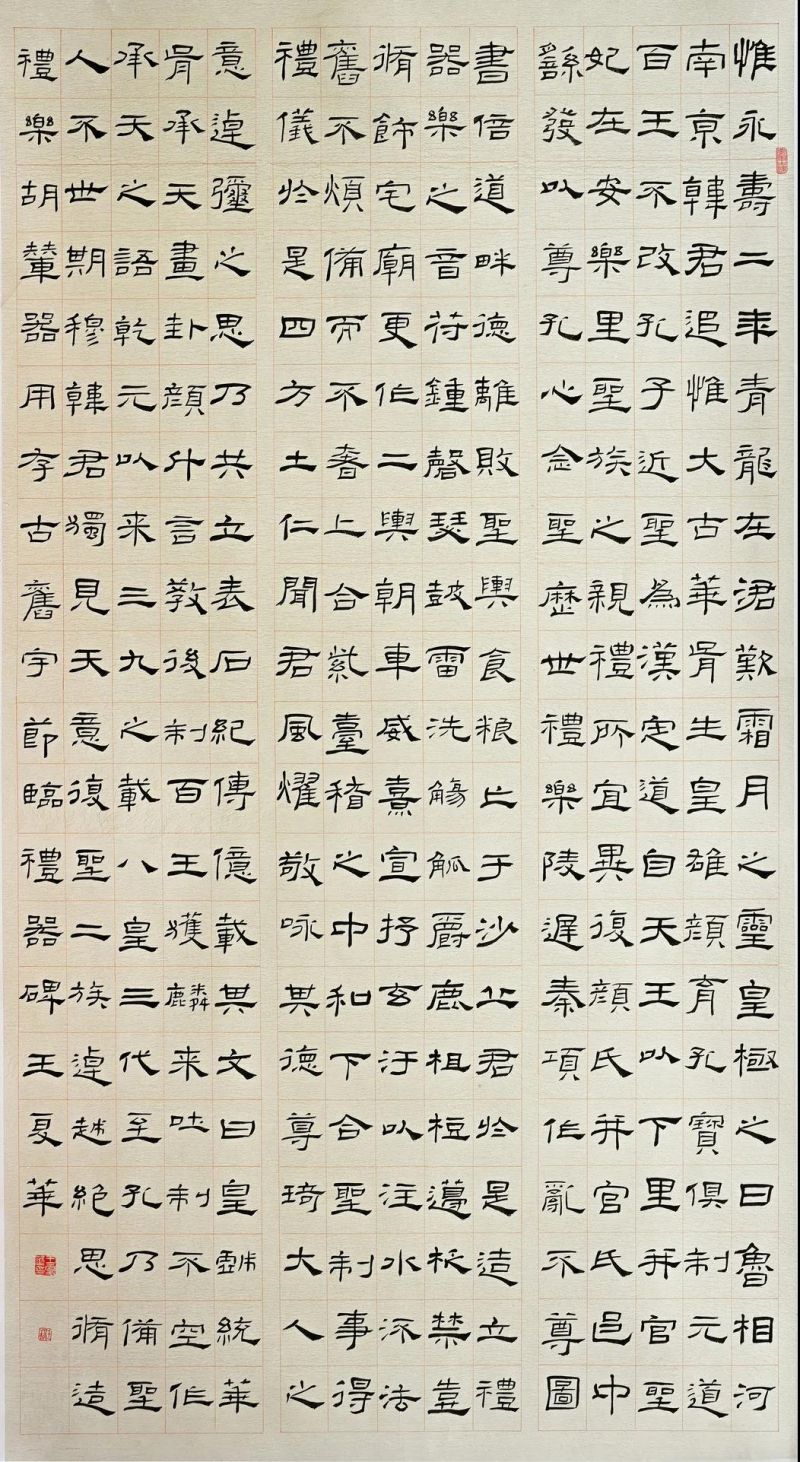 惟永壽二年青龍在涒歎霜月之靈皇極之日魯相河
南京韓君追惟大古華胥生皇雄顏育孔寶俱制元道
百王不改孔子近聖為漢定道自天王以下里并官聖
妃在安樂里聖族之親禮所宜異復顏氏并官氏邑中
繇發以尊孔心念聖歷世禮樂陵遲秦項作亂不尊圖
書倍道畔德離敗聖輿食粮亡于沙丘君於是造立禮
器樂之音符鍾磬瑟鼓雷洗觴觚爵鹿柤梪籩柉禁壺
脩飾宅廟更作二輿朝車威熹宣抒玄汙以注水流法
舊不煩備而不奢上合紫臺稽之中和下合聖制事得
禮儀於是四方土仁聞君風燿敬咏其德尊琦大人之
意逴彌之思乃共立表石紀傳億載其文曰皇戲統華
胥承天畫卦顏升言教後制百王獲麟来吐制不空作
承天之語乾元以来三九之載八皇三代至孔乃備聖
人不世期穆韓君獨見天意復聖二族逴越絕思脩造
禮樂胡輦器用存古舊宇節臨禮器碑王夏華